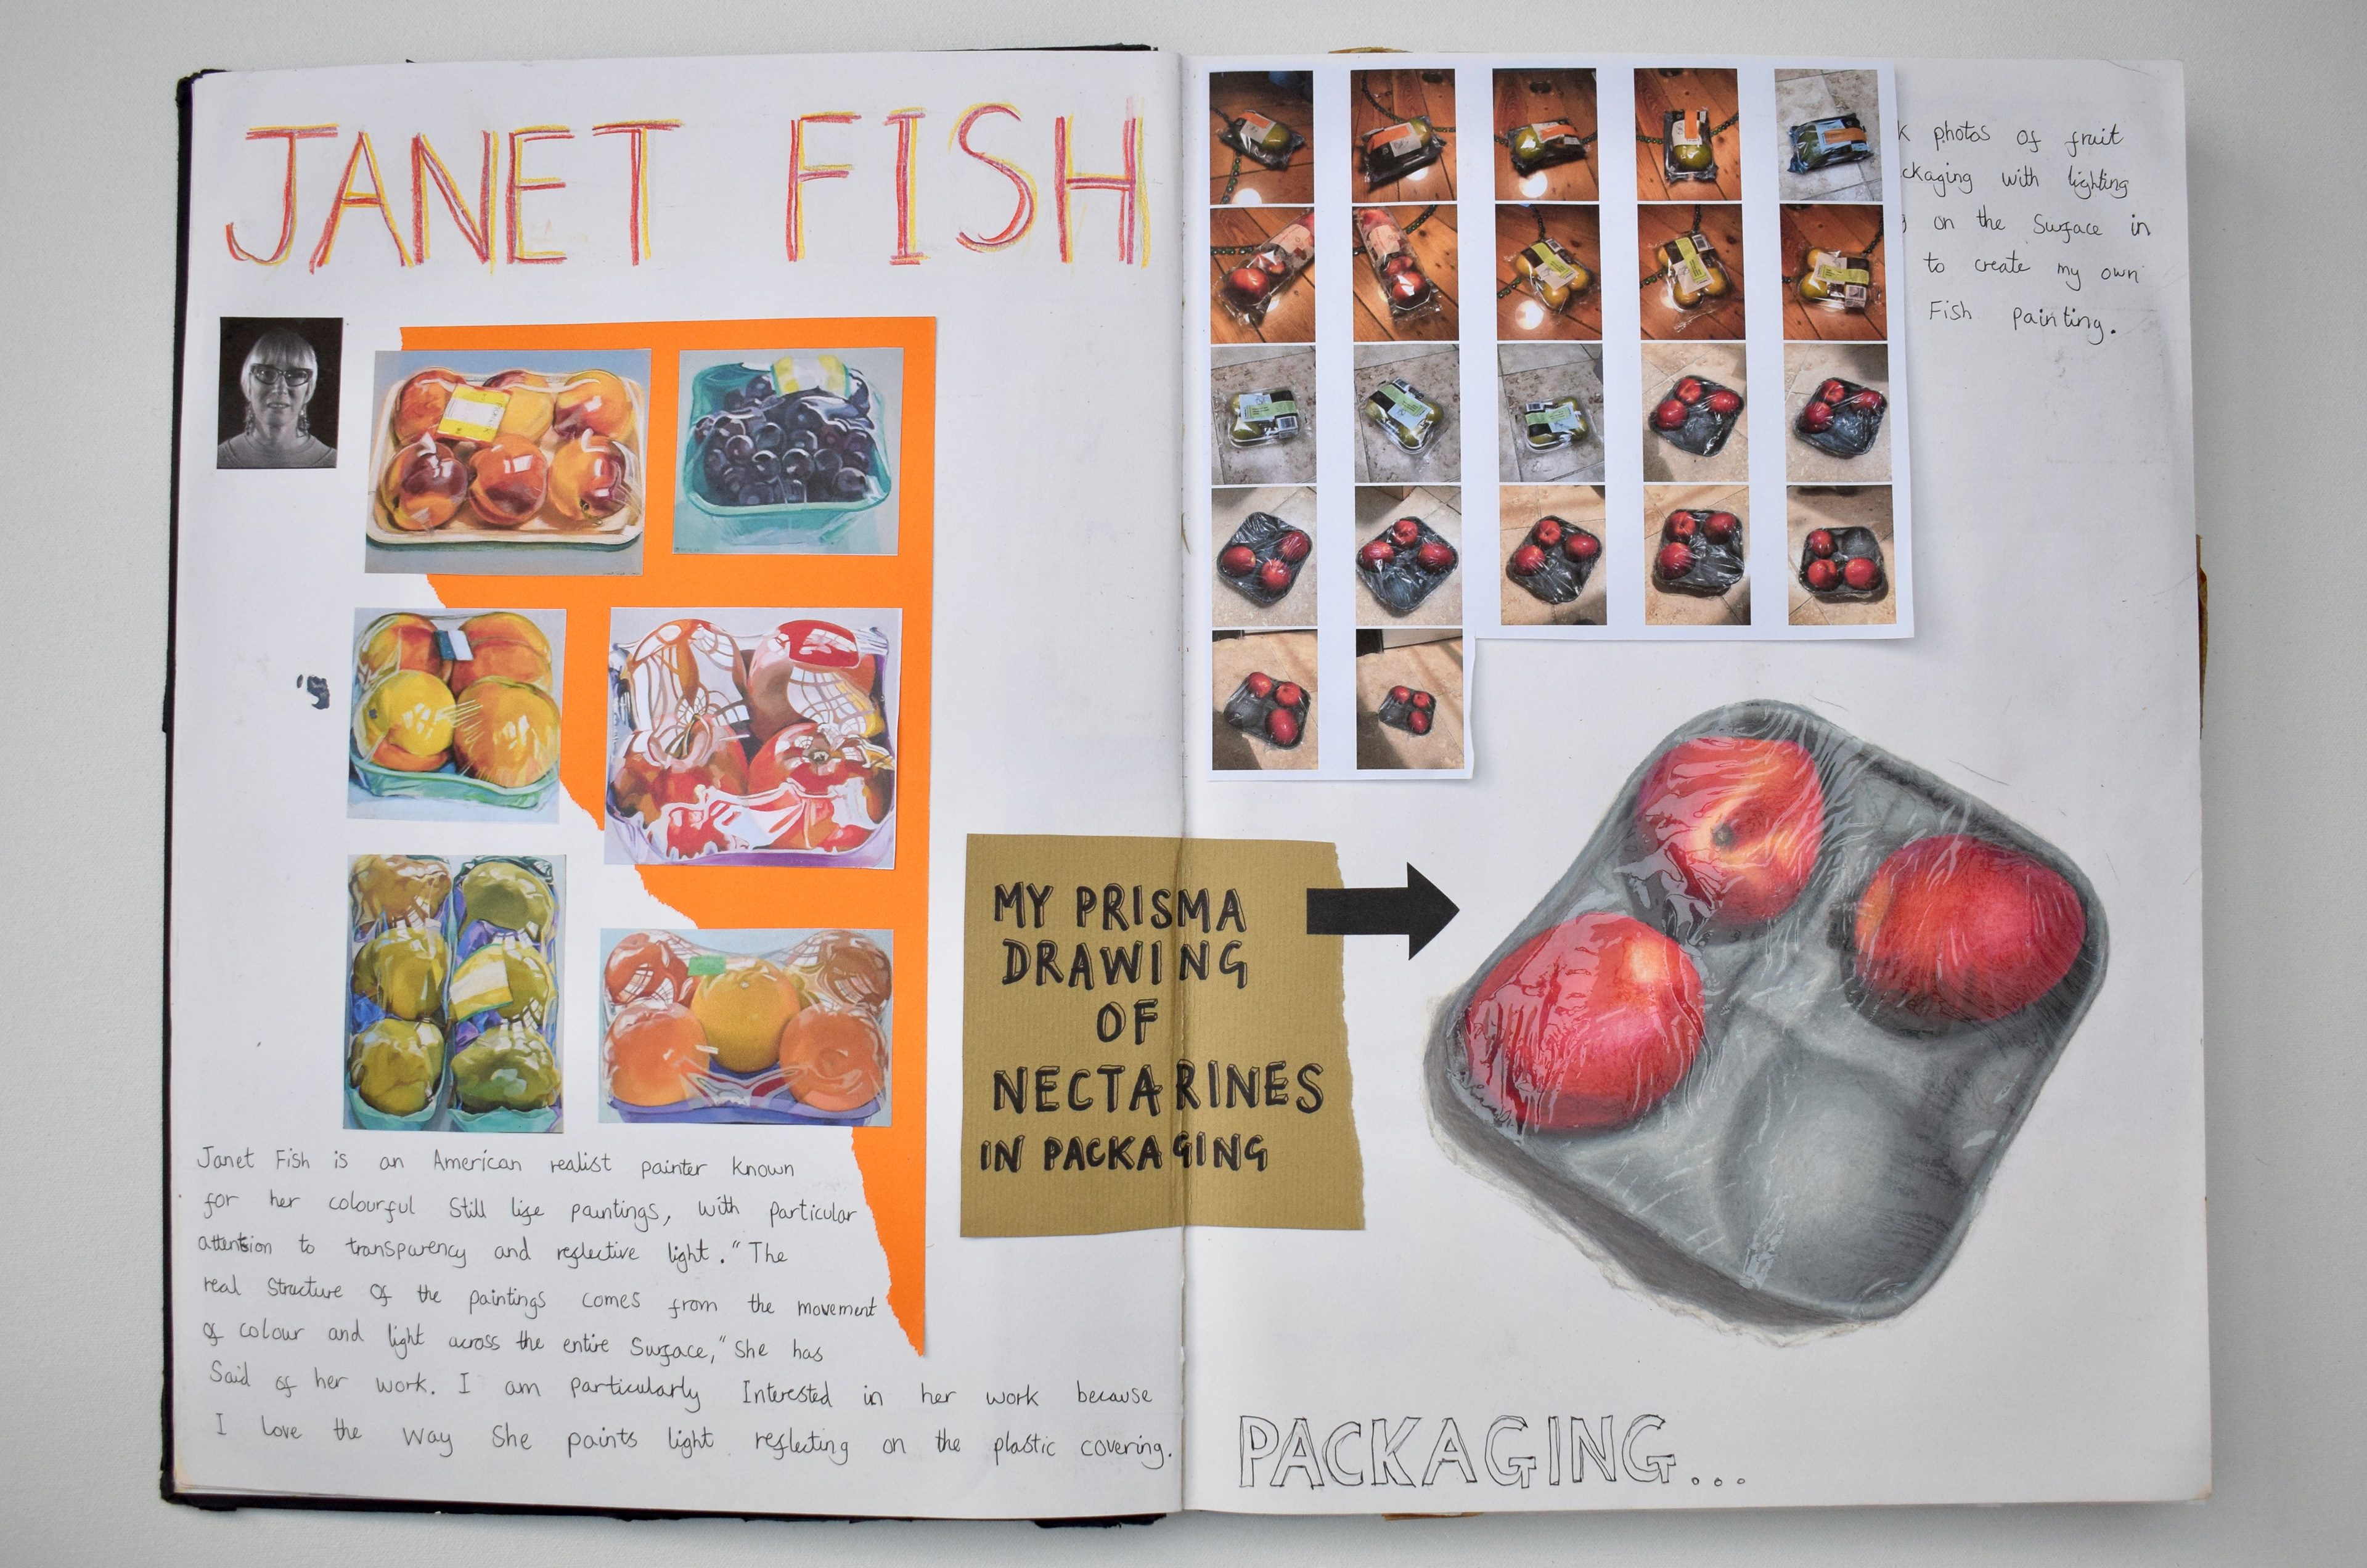 JANET FISH
Janet Fish is an American realist painter known
for her colourful still life paintings, with particular
attention to transparency and reflective light. "The
real structure of the paintings comes from the movement
of colour and light across the entire surface," She has
Said of her work. I am particularly Interested in her work because
I love the way She paints light reflecting on the plastic covering.
MY PRISMA
DRAWING
OF
NECTARINES
IN PACKAGING
k photos of fruit
ckaging with lighting
g on the Surface in
to create my own
Fish painting.
PACKAGING...